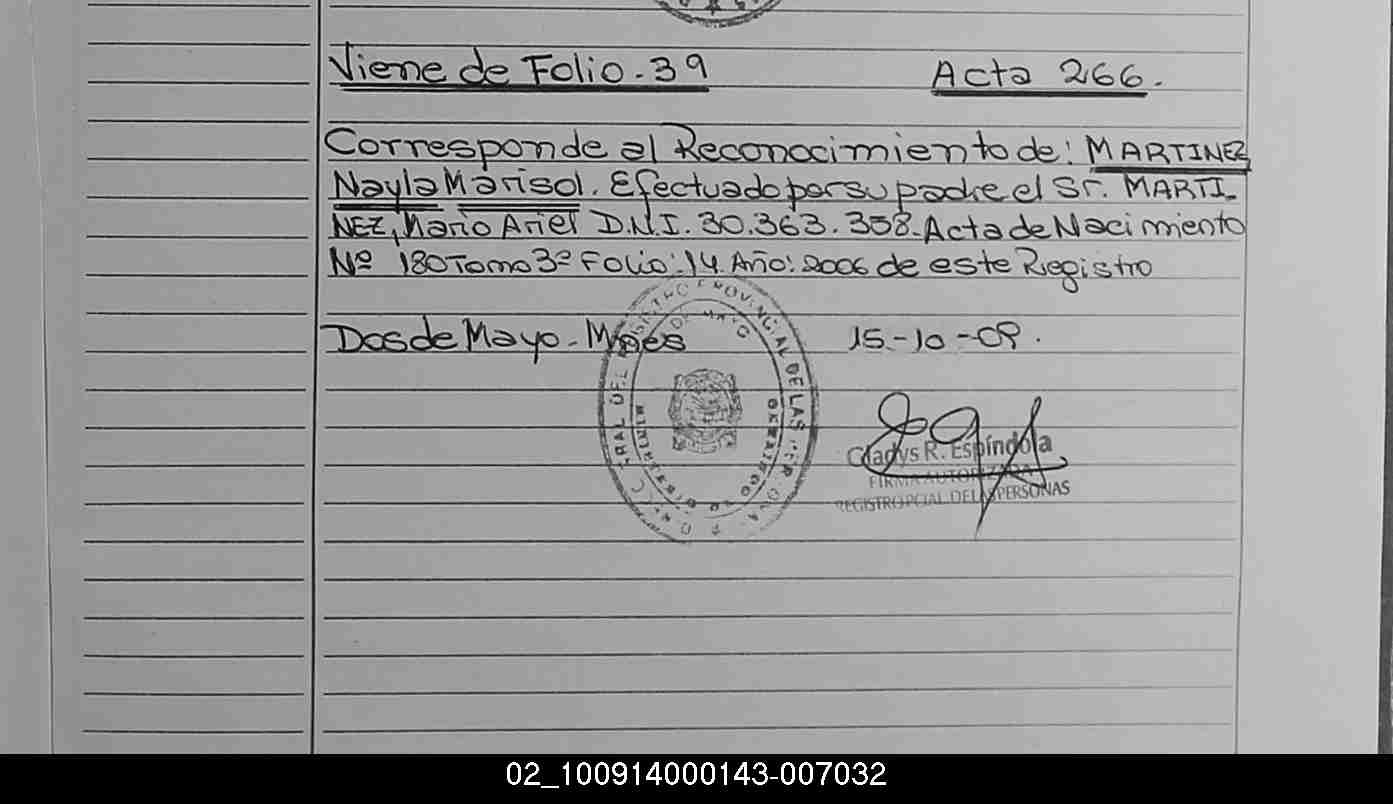 Viene de Folio - 39 Acta 266.
Corresponde al Reconocimiento de: MARTINEZ
Nayla Marisol. Efectuado por su padre el Sr. MARTI-
NEZ, Mario Ariel D.N.I. 30.363.358- Acta de Nacimiento
Nº 180 Tomo 3º Folio: 14 Año: 2006 de este Registro
Dos de Mayo - Mnes 15-10-09.
Gladys R. Espíndola
FIRMA AUTORIZADA
REGISTRO PCIAL. DE LAS PERSONAS
02_100914000143-007032